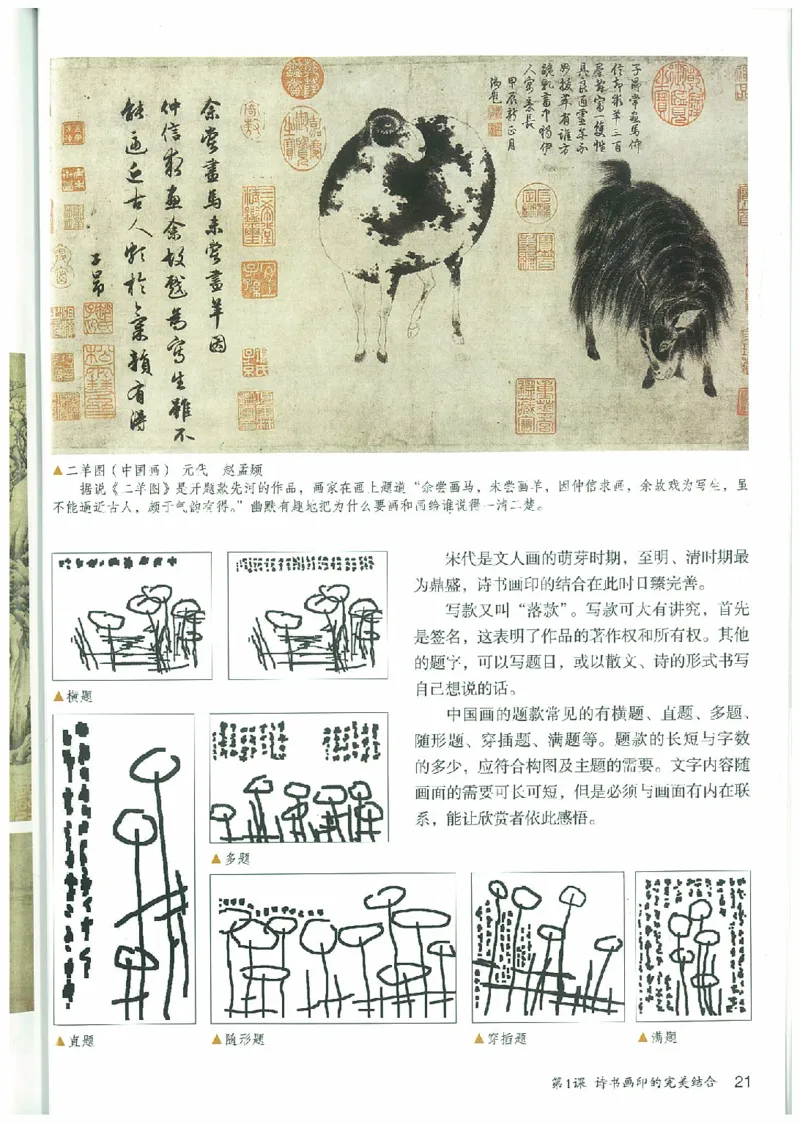 余尝畫馬未尝畫羊因
仲信求畫余故戲為寫生雖不
能逼近古人頗於氣韻有得
子昂
▲二羊图（中国画） 元代 赵孟頫
据说《二羊图》是开题款先河的作品，画家在画上题道“余尝画马，未尝画羊，因仲信求画，余故戏为写生，虽
不能逼近古人，颇于气韵有得。”幽默有趣地把为什么要画和画给谁说得一清二楚。
宋代是文人画的萌芽时期，至明、清时期最
为鼎盛，诗书画印的结合在此时日臻完善。
写款又叫“落款”。写款可大有讲究，首先
是签名，这表明了作品的著作权和所有权。其他
的题字，可以写题目，或以散文、诗的形式书写
自己想说的话。
中国画的题款常见的有横题、直题、多题、
随形题、穿插题、满题等。题款的长短与字数
的多少，应符合构图及主题的需要。文字内容随
画面的需要可长可短，但是必须与画面有内在联
系，能让欣赏者依此感悟。
▲横题
▲多题
▲直题
▲随形题
▲穿插题
▲满题
第1课 诗书画印的完美结合 21